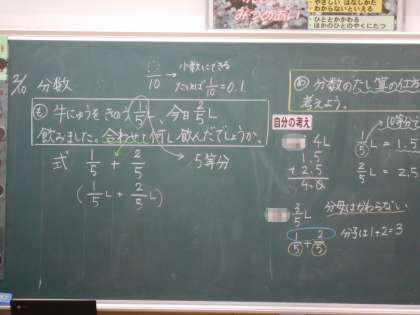 やさしい はなしかた
わからないといえる
ひととかかわる
ほかのひとのやくにたつ
2/10 分数
□/10 → 小数にできる
たとえば 1/10 = 0.1.
も 牛にゅうをきのう 1/5 L、今日 2/5 L
飲みました。合わせて何L飲んだでしょうか。
式 1/5 + 2/5
5等分
(1/5 L + 2/5 L)
め 分数のたし算の仕方を
考えよう。
自分の考え
4L
1.5
+ 2.5
4.0
10等分で
1/5 L = 1.5
2/5 L = 2.5
3/5 L
分母はかわらない
1/5 + 2/5
分子は1+2=3